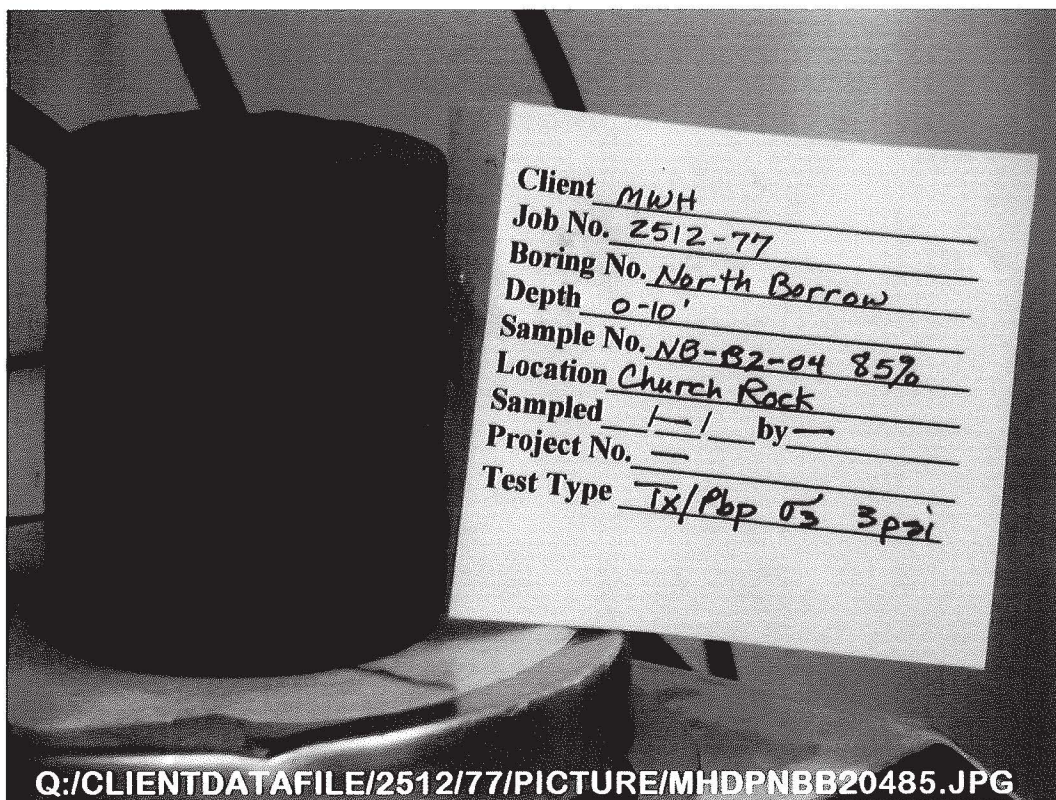 Client MWH
Job No. 2512-77
Boring No. North Borrow
Depth 0-10'
Sample No. NB-B2-04 85%
Location Church Rock
Sampled / — / by —
Project No. —
Test Type Tx/Pbp σ3 3psi
Q:/CLIENTDATAFILE/2512/77/PICTURE/MHDPNBB20485.JPG